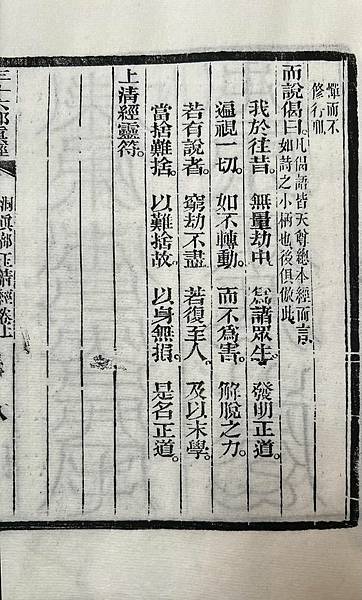 犟而不
修行耶
而說偈曰凡偈語皆天尊總本經而言
如詩之小柄也後俱倣此
我於往昔。無量劫中。為諸眾生。發明正道。
遍視一切。如不轉動。而不為害。解脫之力。
若有說者。窮劫不盡。若復至人。及以末學。
當捨難捨。以難捨故。以身無損。是名正道。
上清經靈符。
三十六部眞經
洞眞部玉清經卷上
八